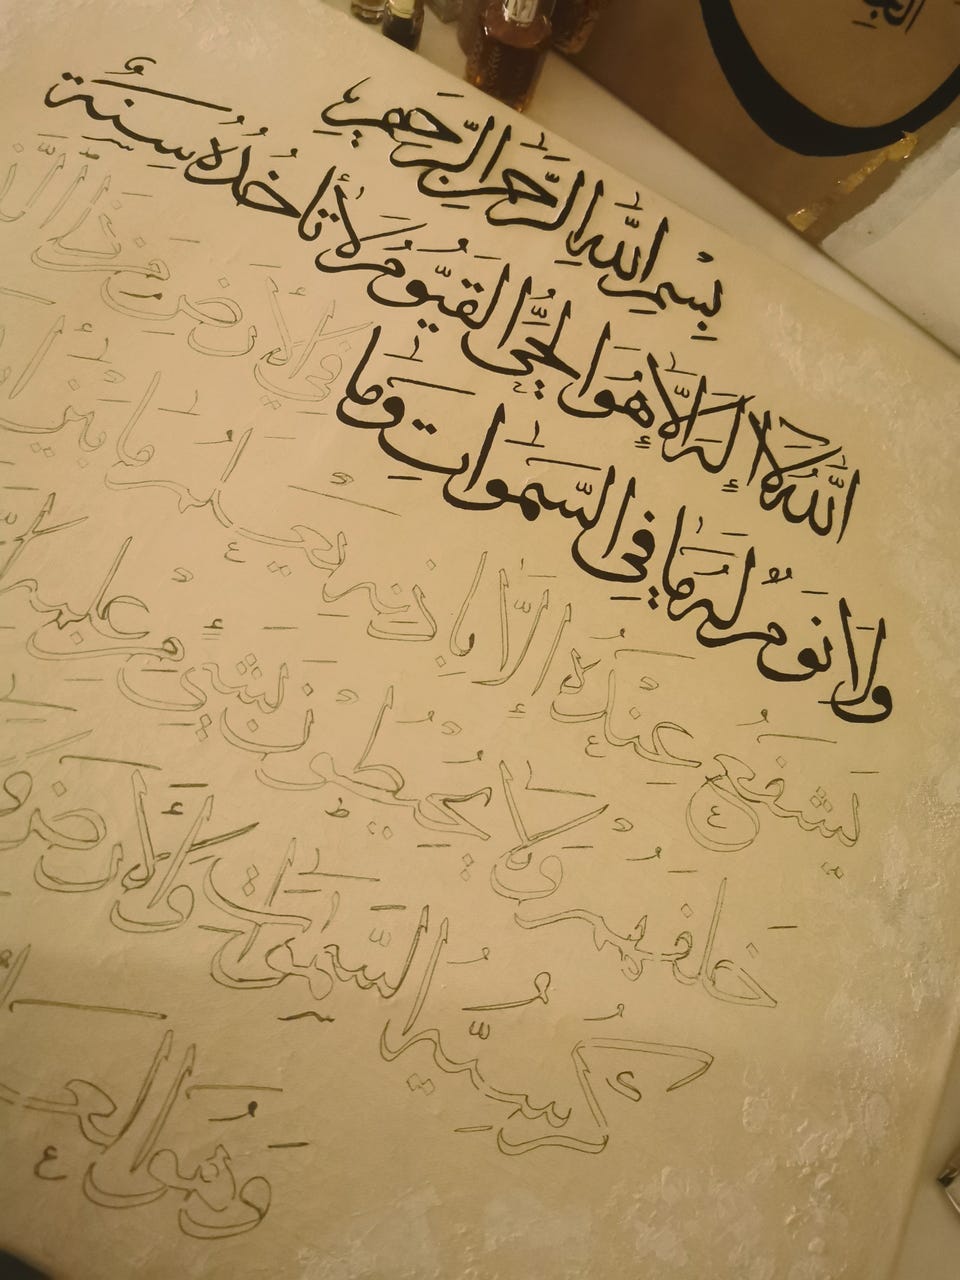 بِسْمِ اللَّهِ الرَّحْمٰنِ الرَّحِيمِ
اللَّهُ لَا إِلَهَ إِلَّا هُوَ الْحَيُّ الْقَيُّومُ لَا تَأْخُذُهُ سِنَةٌ
وَلَا نَوْمٌ لَهُ مَا فِي السَّمٰوَاتِ وَمَا فِي الْأَرْضِ مَنْ ذَا الَّذِي
يَشْفَعُ عِنْدَهُ إِلَّا بِإِذْنِهِ يَعْلَمُ مَا بَيْنَ
خَلْفَهُمْ وَلَا يُحِيطُونَ بِشَيْءٍ مِنْ عِلْمِهِ
كُرْسِيُّهُ السَّمٰوَاتِ وَالْأَرْضَ
وَهُوَ الْعَ